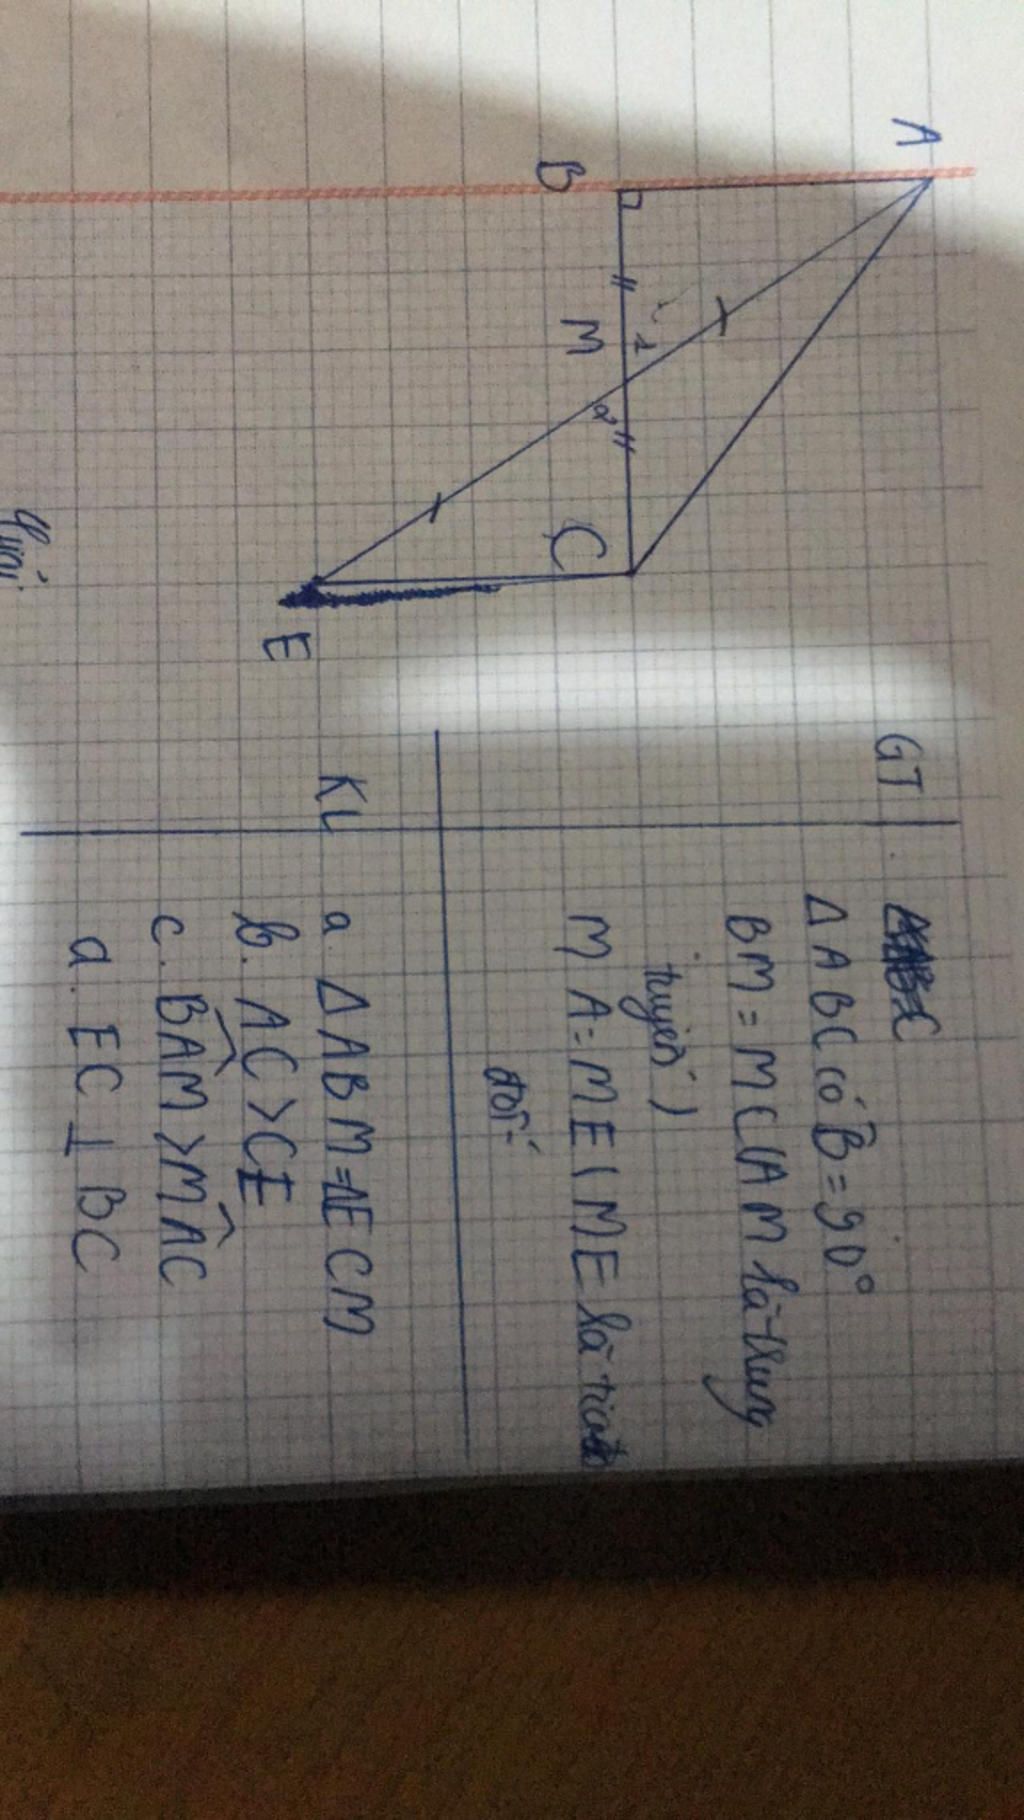 A
B
M
1
2
C
E
GT
Δ ABC có B̂ = 90°
BM = MC (AM là trung
tuyến)
MA = ME (ME là tia
đối
KL
a. Δ ABM = Δ ECM
b. AC > CE
c. BÂM > MÂC
d. EC ⊥ BC
Giải